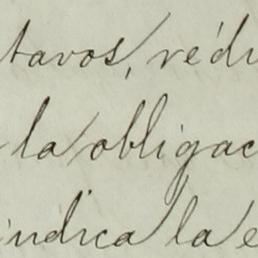 tavos, redu
la obligac
indica la e